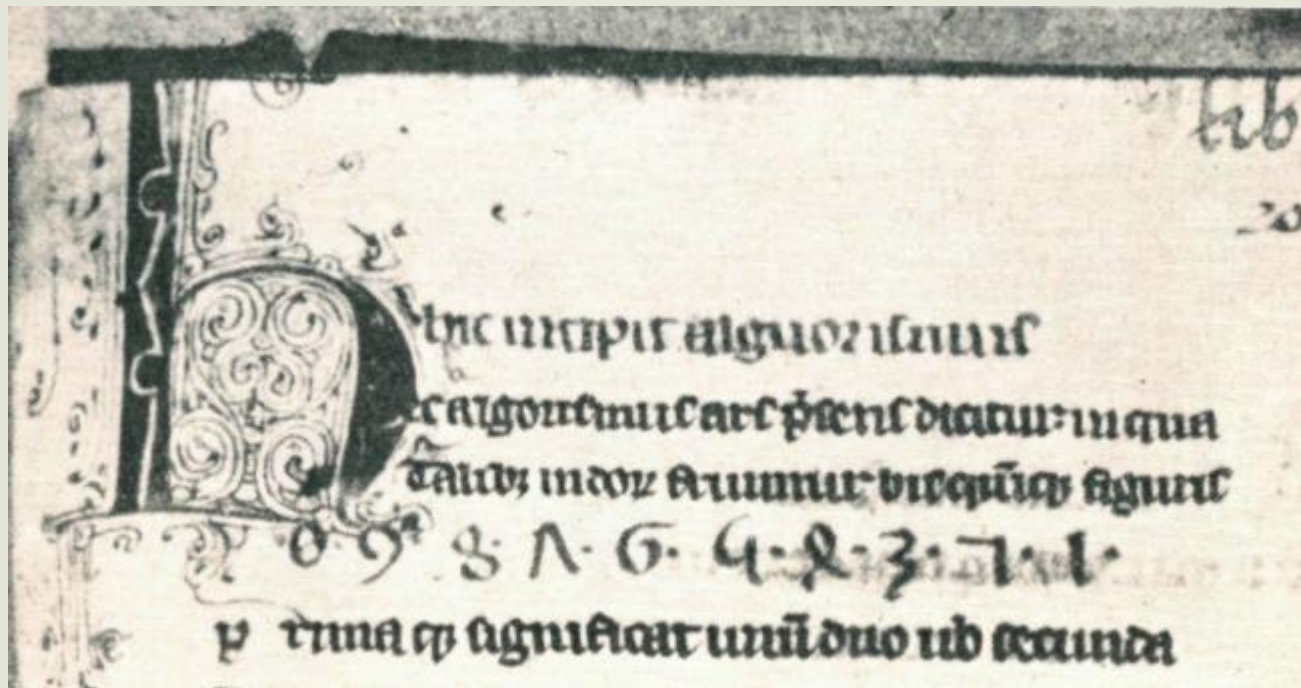 lib
20
hic incipit alguorismus
Hec algorismus ars p̄sens dicitur in qua
Talibꝫ indoꝝ fruimur bis quı̄qꝫ figuris
0. 9. 8. 7. 6. 5. 4. 3. 2. 1.
P rima qꝫ significat unū duo secunda